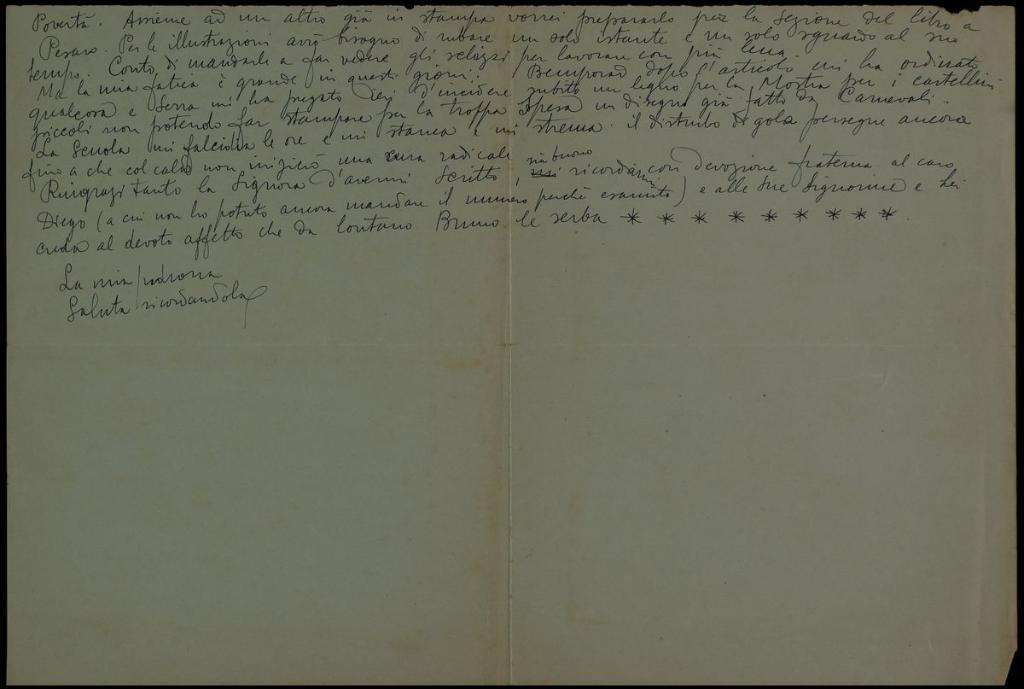 Povertà. Assieme ad un altro già in stampa vorrei prepararlo per la Sezione del libro a
Pesaro. Per le illustrazioni avrò bisogno di rubare un solo istante e un solo sguardo al suo
tempo. Conto di mandarle a far vedere gli schizzi per lavorare con più lena.
Ma la mia fatica è grande in questi giorni: Bemporad dopo l'articolo mi ha ordinato
qualcosa e Serra mi ha pregato ieri d'incidere subito un legno per la Mostra per i castellini
piccoli non potendo far stampare per la troppa spesa un disegno già fatto da Carnevali.
La Scuola mi falcidia le ore e mi stanca e mi strema. il disturbo di gola persegue ancora
fino a che col caldo non inizierò una cura radicale.
Ringrazi tanto la Signora d'avermi scritto, sia buono ricordarmi con devozione fraterna al caro
Diego (a cui non ho potuto ancora mandare il numero perché esaurito) e alle Sue Signorine e Lei
creda al devoto affetto che da lontano Bruno le serba * * * * * * * * *.
La mia padrona
Saluta ricordandola